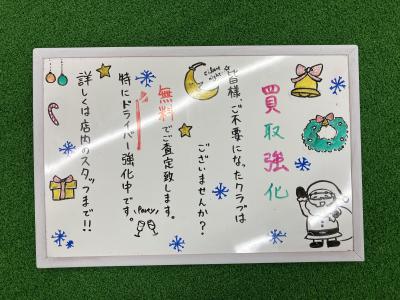 買取強化
皆様、ご不要になったクラブは
ございませんか?
無料でご査定致します。
特にドライバー強化中です。
詳しくは店内のスタッフまで!!
Silent night
Party